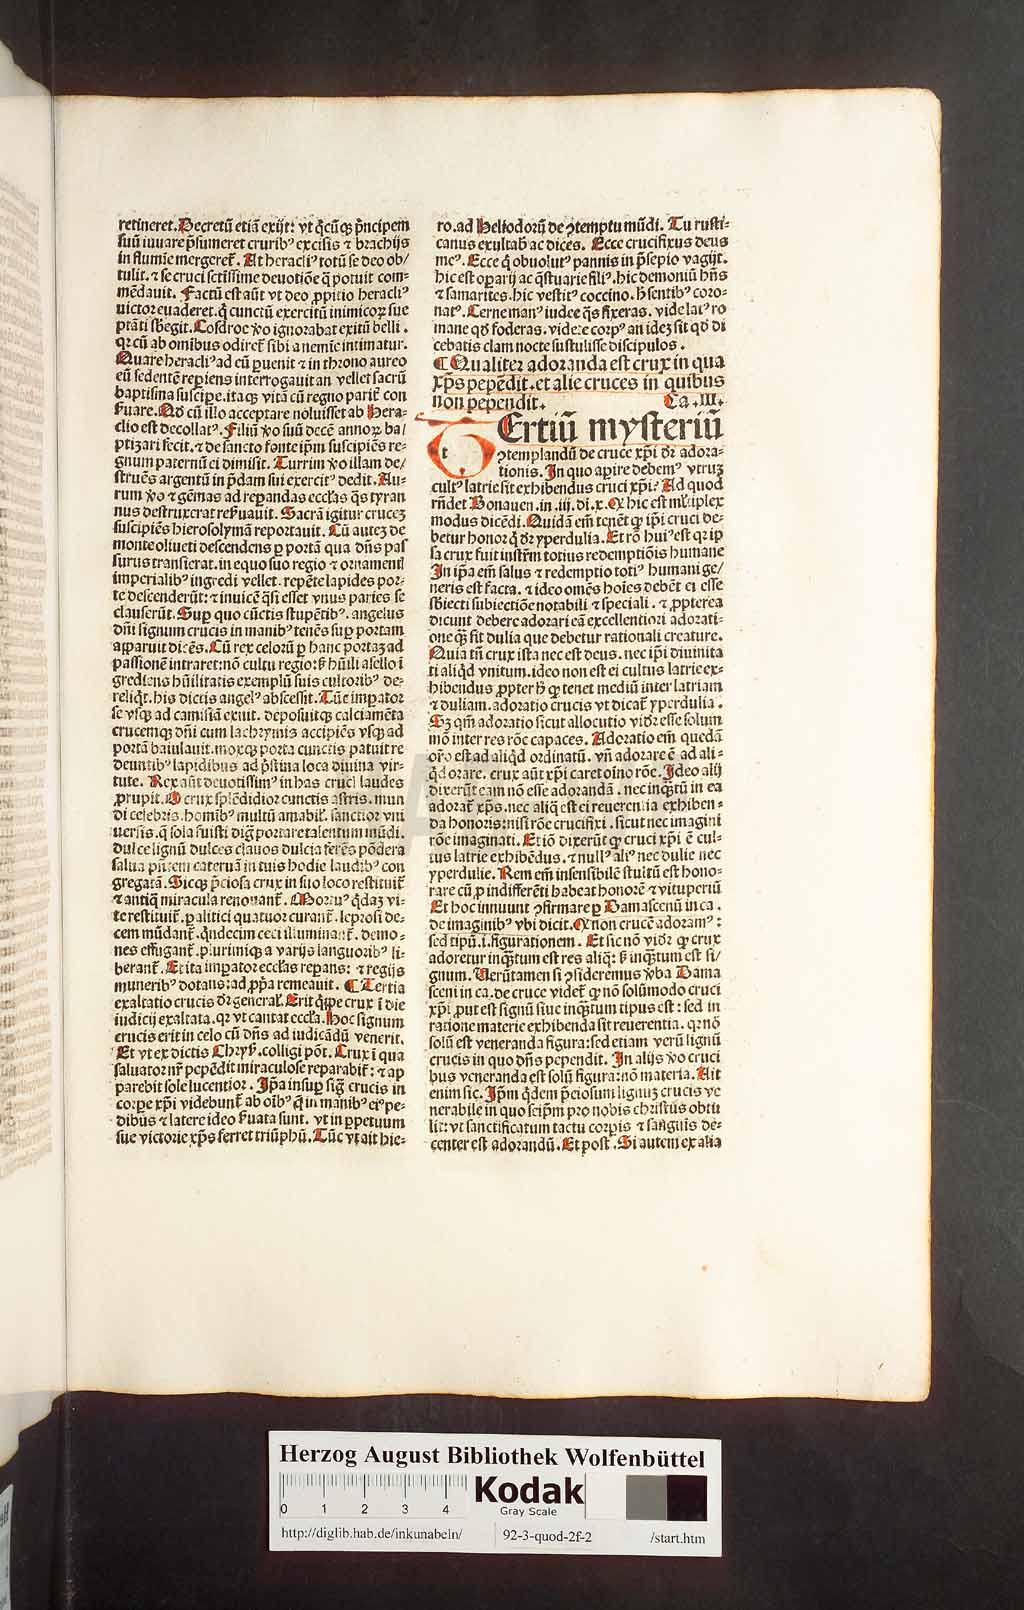 retineret. Decretū etiā exijt: vt q̄cūq̨ p̄ncipem
suū iuuare p̄sumeret cruribꝰ excisis ⁊ brachijs
in flumīe mergeret̄. At heracliꝰ totū se deo ob/
tulit. ⁊ se cruci sctīssime deuotiōe q̄ potuit com-
mēdauit. Factū est aūt vt deo ꝓpitio heracliꝰ
victor euaderet. q̄ cunctū exercitū inimicoꝝ sue
ptāti sb̄egit. Cosdroe ꝟo ignorabat exitū belli.
qꝛ cū ab omibus odiret̄ sibi a nemīe intimatur.
Quare heracliꝰ ad cū ꝑuenit ⁊ in throno aureo
eū sedentē reꝑiens interrogauit an vellet sacrū
baptisma suscipe. ita q̨ vitā cū regno parit̄ con
ẜuare. Qd̄ cū illo acceptare noluisset ab Hera-
clio est decollatꝰ. Filiū ꝟo suū decē annoꝝ ba/
ptizari fecit. ⁊ de sancto fonte ip̄m suscipiēs re-
gnum paternū ei dimisit. Turrim ꝟo illam de/
struēs argentū in p̄dam sui exercitꝰ dedit. Au-
rum ꝟo ⁊ gēmas ad reꝑandas eccl̄as q̄s tyran
nus destruxerat reẜuauit. Sacrā igitur crucez
suscipiēs hierosolymā reportauit. Cū autez de
monte oliueti descendens ꝑ portā qua dn̄s pas
surus transierat. in equo suo regio ⁊ ornamentī
imperialibꝰ ingredi vellet. repēte lapides por-
te descenderūt: ⁊ inuicē q̄si esset vnus paries se
clauserūt. Suꝑ quo cūctis stupētibꝰ. angelus
dn̄i signum crucis in manibꝰ tenēs suꝑ portam
apparuit dicēs. Cū rex celorū ꝑ hanc portaz ad
passionē intraret: nō cultu regio: ß hūili asello ī
grediens hūilitatis exemplū suis cultoribꝰ de-
reliq̄t. his dictis angelꝰ abscessit. Tūc impator
se vsq̨ ad camisiā exuit. deposuitq̨ calciamēta
crucemq̨ dn̄i cum lachrymis accipiēs vsq̨ ad
portā baiulauit. moxq̨ porta cunctis patuit re
deuntibꝰ lapidibus ad p̄stina loca diuina vir-
tute. Rex aūt deuotissimꝰ in has cruci laudes
ꝓrupit. O crux splēdidior cunctis astris. mun
di celebris. homibꝰ multū amabil̄. sanctior vni
uersis. q̄ sola fuisti dig̊ portare talentum mūdi.
dulce lignū dulces clauos dulcia ferēs pōdera
salua pn̄tem cateruā in tuis hodie laudibꝰ con
gregatā. Sicq̨ p̄ciosa crux in suo loco restituit̄
⁊ antiq̄ miracula renouant̄. Mortuꝰ q̄daz vi-
te restituit̄. ꝑalitici quatuor curant̄. leprosi de-
cem mūdant̄. q̄ndecim ceci illuminant̄. demo-
nes effugant̄. plurimiq̨ a varijs languoribꝰ li-
berant̄. Et ita impator eccl̄as reꝑans: ⁊ regijs
muneribꝰ dotans: ad ꝓpꝛa remeauit. ¶ Tertia
exaltatio crucis dr̄ general̄. Erit q̄ppe crux ī die
iudicij exaltata. qꝛ vt cantat eccl̄a. Hoc signum
crucis erit in celo cū dn̄s ad iudicādū venerit.
Et vt ex dictis Chryẜ. colligi pōt. Crux ī qua
saluator nr̄ pepēdit miraculose reparabit̄: ⁊ ap
parebit sole lucentior. Ip̄a insuꝑ sig̊ crucis in
corpe xp̄i videbunt̄ ab oībꝰ q̄ in manibꝰ eiꝰ pe-
dibus ⁊ latere ideo ẜuata sunt. vt in ꝑpetuum
sue victorie xp̄s ferret triūphū. Tūc vt ait hie-
ro. ad Heliodorū de ꝯtemptu mūdi. Tu rusti-
canus exultab̄ ac dices. Ecce crucifixus deus
meꝰ. Ecce q̄ obuolutꝰ pannis in p̄sepio vagijt.
hic est oꝑarij ac q̄stuarie filiꝰ. hic demoniū hn̄s
⁊ samarites. hic vestitꝰ coccino. h̄ sentibꝰ coro-
natꝰ. Cerne manꝰ iudee q̄s fixeras. vide latꝰ ro
mane qd̄ foderas. videte corpꝰ an idez sit qd̄ di
cebatis clam nocte sustulisse discipulos.
¶ Qualiter adoranda est crux in qua
xp̄s pepēdit. et alie cruces in quibus
non pependit. Ca. III.
t Ertiū mysteriū
ꝯtemplandū de cruce xp̄i dr̄ adora-
tionis. In quo aꝑire debemꝰ vtruz
cultꝰ latrie sit exhibendus cruci xp̄i: Ad quod
rn̄det Bonauen. in .iij. di. x. Q hic est ml̄tiplex
modus dicēdi. Quidā em̄ tenēt q̨ ip̄i cruci de-
betur honor q̄ dr̄ yperdulia. Et rō huiꝰ est qꝛ ip
sa crux fuit instrm̄ totius redemptiōis humane
In ip̄a em̄ salus ⁊ redemptio totiꝰ humani ge/
neris est facta. ⁊ ideo omēs hoīes debēt ei esse
sb̄iecti subiectiōe notabili ⁊ speciali. ⁊ ꝓpterea
dicunt debere adorari eā excellentiori adorati-
one q̄ sit dulia que debetur rationali creature.
Quia tn̄ crux ista nec est deus. nec ip̄i diuinita
ti aliq̄d vnitum. ideo non est ei cultus latrie ex-
hibendus ꝓpter h̄ q̨ tenet mediū inter latriam
⁊ duliam. adoratio crucis vt dicat̄ yperdulia.
Sꝫ qm̄ adoratio sicut allocutio vidr̄ esse solum
mō inter res rōe capaces. Adoratio em̄ quedā
orō est ad aliq̄d ordinatū. vn̄ adorare ē ad ali-
q̄d orare. crux aūt xp̄i caret oīno rōe. Ideo alij
dixerūt eam nō esse adorandā. nec inq̄tū in ea
adorat̄ xp̄s. nec aliq̄ est ei reuerentia exhiben-
da honoris: nisi rōe crucifixi. sicut nec imagini
rōe imaginati. Et iō dixerūt q̨ cruci xp̄i ē cul-
tus latrie exhibēdus. ⁊ nullꝰ aliꝰ nec dulie nec
yperdulie. Rem em̄ insensibilē stultū est hono-
rare cū ꝑ indifferēti habeat honorē ⁊ vituperiū
Et hoc innuunt ꝯfirmare ꝑ Damascenū in ca.
de imaginibꝰ vbi dicit. Q non crucē adoramꝰ:
sed tipū .i. figurationem. Et sic nō vidr̄ q̨ crux
adoretur inq̄tum est res aliq̄: ß inq̄tum est si/
gnum. Uerūtamen si ꝯsideremus ꝟba Dama
sceni in ca. de cruce videt̄ q̨ nō solūmodo cruci
xp̄i ꝓut est signū siue inq̄tum tipus est: sed in
ratione materie exhibenda sit reuerentia. qꝛ nō
solū est veneranda figura: sed etiam verū lignū
crucis in quo dn̄s pependit. In alijs ꝟo cruci
bus veneranda est solū figura: nō materia. Ait
enim sic. Ip̄m q̄dem p̄ciosum lignuz crucis ve
nerabile in quo seip̄m pro nobis christus obtu
lit: vt sanctificatum tactu corpis ⁊ sanguis de-
center est adorandū. Et post. Si autem ex alia
Herzog August Bibliothek Wolfenbüttel
0 1 2 3 4
Kodak
Gray Scale
http://diglib.hab.de/inkunabeln/ 92-3-quod-2f-2 /start.htm